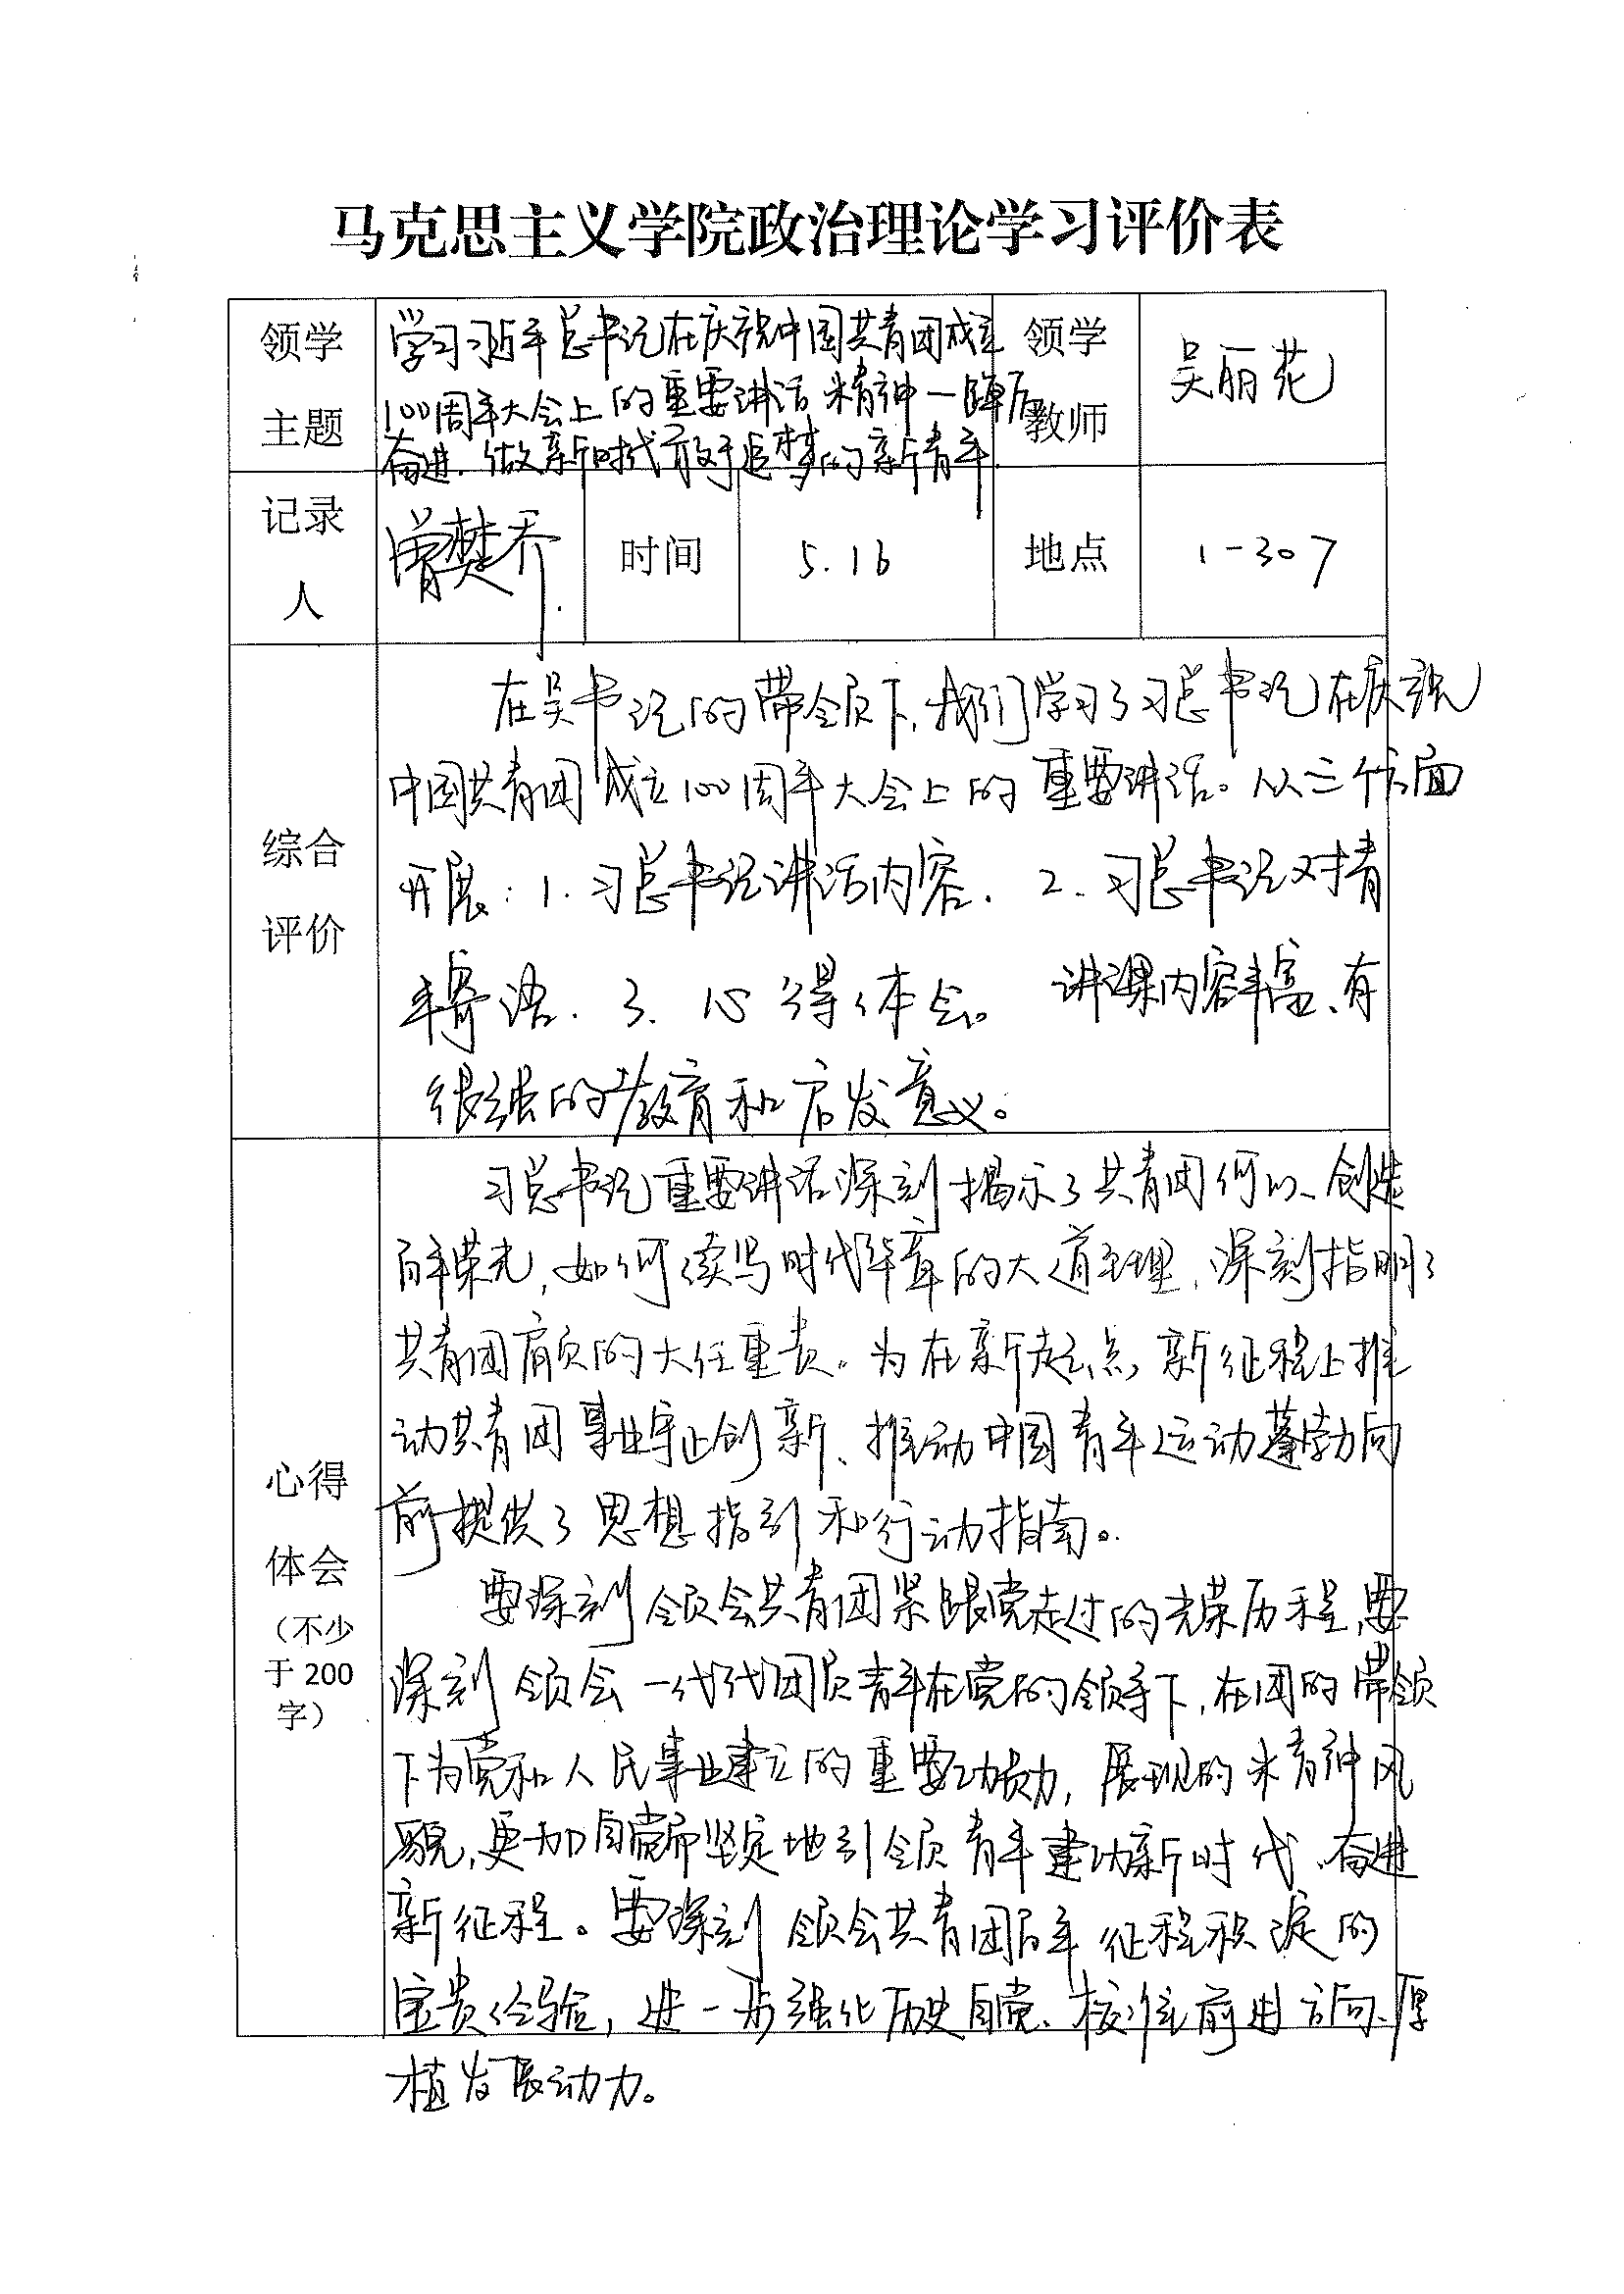 马克思主义学院政治理论学习评价表
领学
主题
学习习近平总书记在庆祝中国共青团成立
100周年大会上的重要讲话精神—踔厉
奋进.做新时代敢于追梦的新青年.
领学
教师
吴丽花
记录
人
曾楚乔.
时间
5.16
地点
1-307
综合
评价
在吴书记的带领下,我们学习了习总书记在庆祝
中国共青团成立100周年大会上的重要讲话。从三个方面
开展:1.习总书记讲话内容.2.习总书记对青
年寄语.3.心得体会。讲课内容丰富、有
很强的教育和启发意义。
心得
体会
(不少
于200
字)
习总书记重要讲话深刻揭示了共青团何以创造
百年荣光,如何续写时代华章的大道至理,深刻指明了
共青团肩负的大任重责。为在新起点,新征程上推
动共青团事业守正创新、推动中国青年运动蓬勃向
前提供了思想指引和行动指南。
要深刻领会共青团紧跟党走过的光荣历程,要
深刻领会一代代团员青年在党的领导下,在团的带领
下为党和人民事业建立的重要功勋,展现的精神风
貌,更加自觉而坚定地引领青年建功新时代、奋进
新征程。要深刻领会共青团百年征程积淀的
宝贵经验,进一步强化历史自觉、校准前进方向、厚
植发展动力。